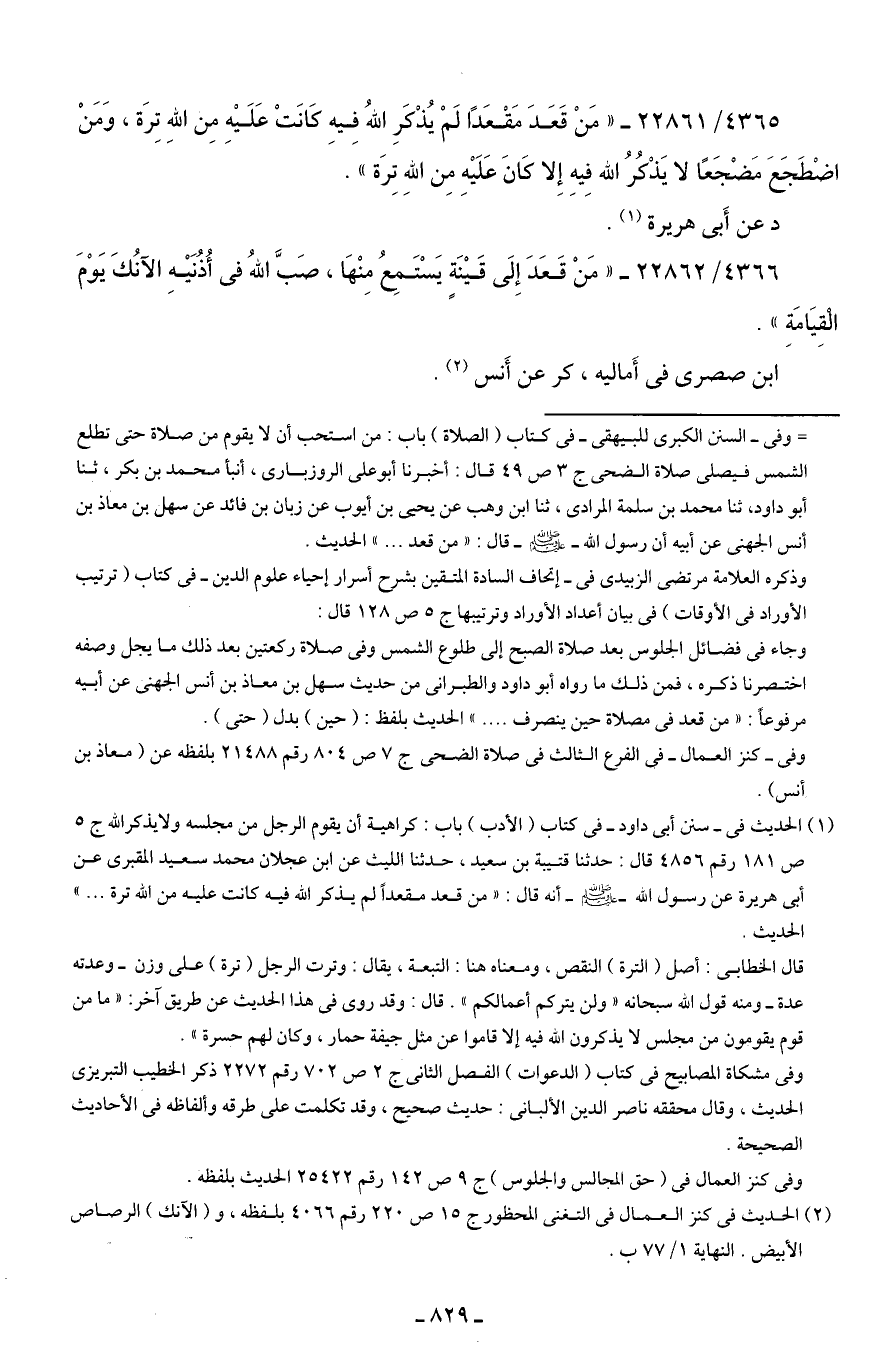 ٢٢٨٦١/٤٣٦٥ ـ « مَنْ قَعَدَ مَقْعَدًا لَمْ يُذْكَرِ اللهُ فِيهِ كَانَتْ عَلَيْهِ مِنِ اللهِ تِرَة ، وَمَنْ
اضْطَجَعَ مَضْجَعًا لا يَذْكُرُ الله فِيهِ إِلا كَانَ عَلَيْهِ مِن اللهِ تِرَة » .
د عن أَبى هريرة (١) .
٢٢٨٦٢/٤٣٦٦ ـ « مَنْ قَعَدَ إِلَى قَيْنَةٍ يَسْتَمِعُ مِنْهَا ، صَبَّ اللهُ فى أُذُنَيْهِ الآنُكَ يَوْمَ
الْقِيَامَةِ » .
ابن صصرى فى أَماليه ، كر عن أَنس (٢) .
= وفى ـ السنن الكبرى للبيهقى ـ فى كتاب ( الصلاة ) باب : من استحب أن لا يقوم من صلاة حتى تطلع
الشمس فيصلى صلاة الضحى ج ٣ ص ٤٩ قال : أخبرنا أبوعلى الروزبارى ، أنبأ محمد بن بكر ، ثنا
أبو داود، ثنا محمد بن سلمة المرادى ، ثنا ابن وهب عن يحيى بن أيوب عن زبان بن فائد عن سهل بن معاذ بن
أنس الجهنى عن أبيه أن رسول الله ـ ﷺ ـ قال : « من قعد ... » الحديث .
وذكره العلامة مرتضى الزبيدى فى ـ إتحاف السادة المتقين بشرح أسرار إحياء علوم الدين ـ فى كتاب ( ترتيب
الأوراد فى الأوقات ) فى بيان أعداد الأوراد وترتيبها ج ٥ ص ١٢٨ قال :
وجاء فى فضائل الجلوس بعد صلاة الصبح إلى طلوع الشمس وفى صلاة ركعتين بعد ذلك ما يجل وصفه
اختصرنا ذكره ، فمن ذلك ما رواه أبو داود والطبرانى من حديث سهل بن معاذ بن أنس الجهنى عن أبيه
مرفوعاً : « من قعد فى مصلاة حين ينصرف .... » الحديث بلفظ : ( حين ) بدل ( حتى ) .
وفى ـ كنز العمال ـ فى الفرع الثالث فى صلاة الضحى ج ٧ ص ٨٠٤ رقم ٢١٤٨٨ بلفظه عن ( معاذ بن
أنس) .
(١) الحديث فى ـ سنن أبى داود ـ فى كتاب ( الأدب ) باب : كراهية أن يقوم الرجل من مجلسه ولايذكرالله ج ٥
ص ١٨١ رقم ٤٨٥٦ قال : حدثنا قتيبة بن سعيد ، حدثنا الليث عن ابن عجلان محمد سعيد المقبرى عن
أبى هريرة عن رسول الله ـ ﷺ ـ أنه قال : « من قعد مقعداً لم يذكر الله فيه كانت عليه من الله ترة ... »
الحديث .
قال الخطابى : أصل ( الترة ) النقص ، ومعناه هنا : التبعة ، يقال : وترت الرجل ( ترة ) على وزن ـ وعدته
عدة ـ ومنه قول الله سبحانه « ولن يتركم أعمالكم » . قال : وقد روى فى هذا الحديث عن طريق آخر: « ما من
قوم يقومون من مجلس لا يذكرون الله فيه إلا قاموا عن مثل جيفة حمار ، وكان لهم حسرة » .
وفى مشكاة المصابيح فى كتاب ( الدعوات ) الفصل الثانى ج ٢ ص ٧٠٢ رقم ٢٢٧٢ ذكر الخطيب التبريزى
الحديث ، وقال محققه ناصر الدين الألبانى : حديث صحيح ، وقد تكلمت على طرقه وألفاظه فى الأحاديث
الصحيحة .
وفى كنز العمال فى ( حق المجالس والجلوس ) ج ٩ ص ١٤٢ رقم ٢٥٤٢٢ الحديث بلفظه .
(٢) الحديث فى كنز العمال فى التغنى المحظور ج ١٥ ص ٢٢٠ رقم ٤٠٦٦ بلفظه ، و ( الآنك ) الرصاص
الأبيض . النهاية ١/ ٧٧ ب .
ـ ٨٢٩ ـ